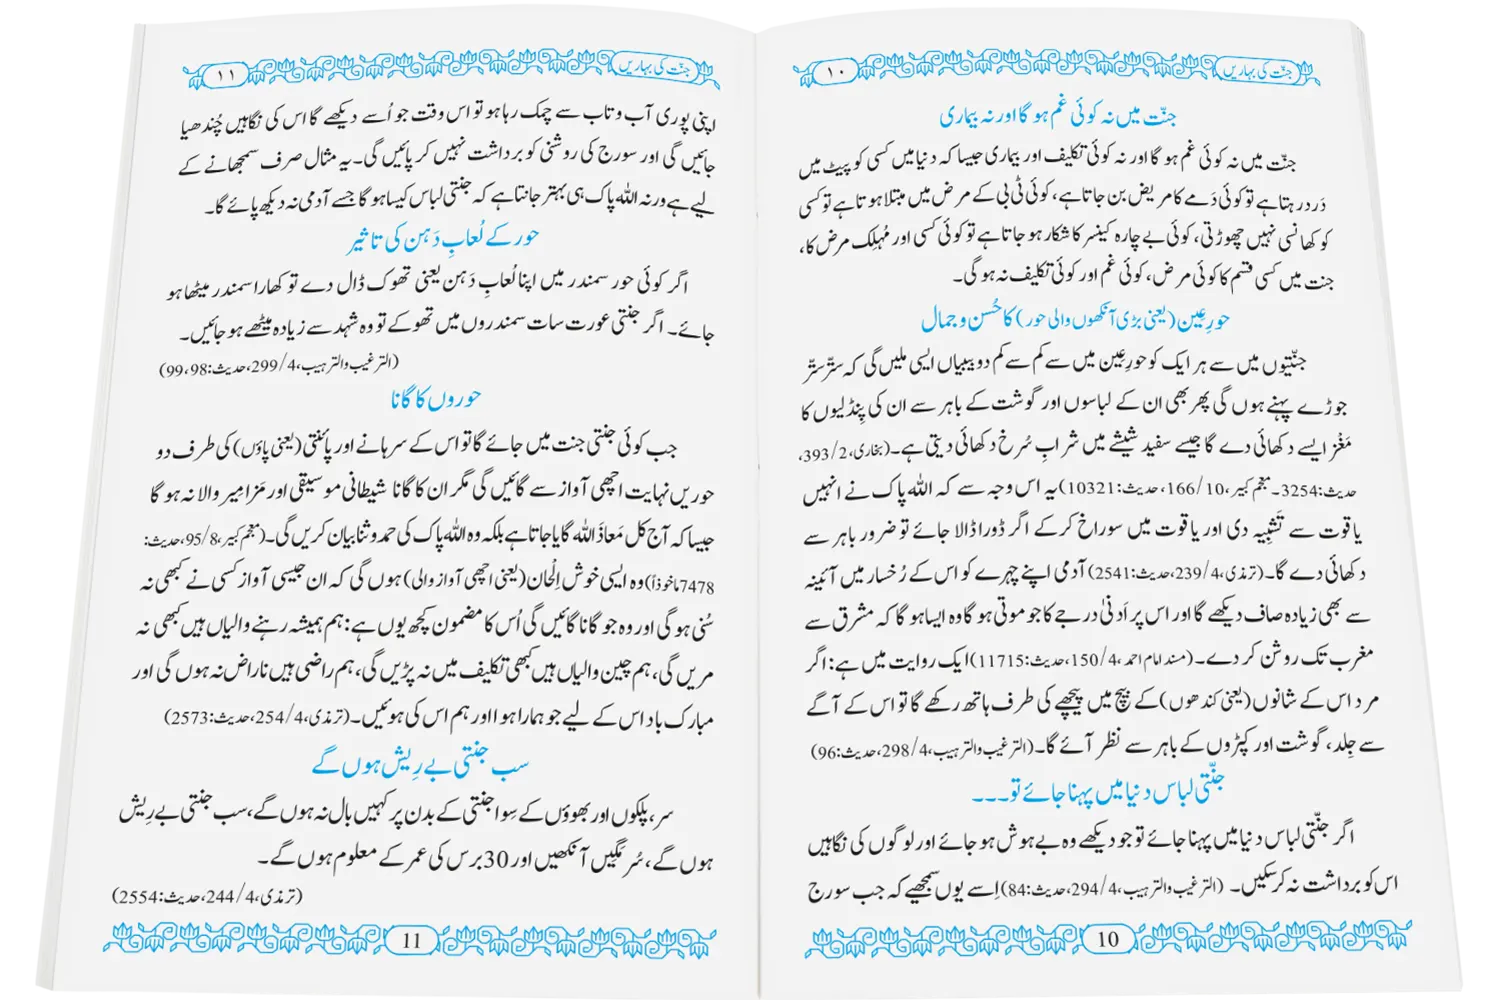 جنّت کی بہاریں
۱۰
جنّت میں نہ کوئی غم ہو گا اور نہ بیماری
جنّت میں نہ کوئی غم ہو گا اور نہ کوئی تکلیف اور بیماری جیسا کہ دنیا میں کسی کو پیٹ میں
دَرد رہتا ہے تو کوئی دَمے کا مریض بن جاتا ہے، کوئی ٹی بی کے مرض میں مبتلا ہوتا ہے تو کسی
کو کھانسی نہیں چھوڑتی، کوئی بے چارہ کینسر کا شکار ہو جاتا ہے تو کوئی کسی اور مُہلِک مرض کا،
جنت میں کسی قسم کا کوئی مرض، کوئی غم اور کوئی تکلیف نہ ہو گی۔
حورِ عِین (یعنی بڑی آنکھوں والی حور) کا حُسن و جمال
جنّتیوں میں سے ہر ایک کو حورِ عِین میں سے کم سے کم دو بیبیاں ایسی ملیں گی کہ ستّر ستّر
جوڑے پہنے ہوں گی پھر بھی ان کے لباسوں اور گوشت کے باہر سے ان کی پِنڈلیوں کا
مَغْز ایسے دکھائی دے گا جیسے سفید شیشے میں شرابِ سُرخ دکھائی دیتی ہے۔ (بخاری، 2/393،
حدیث:3254۔ معجم کبیر، 10/166، حدیث:10321) یہ اس وجہ سے کہ اللہ پاک نے انہیں
یاقوت سے تَشْبِیہ دی اور یاقوت میں سوراخ کر کے اگر ڈورا ڈالا جائے تو ضرور باہر سے
دکھائی دے گا۔ (ترمذی، 4/239، حدیث:2541) آدمی اپنے چہرے کو اس کے رُخسار میں آئینہ
سے بھی زیادہ صاف دیکھے گا اور اس پر اَدنیٰ درجے کا جو موتی ہو گا وہ ایسا ہو گا کہ مشرق سے
مغرب تک روشن کر دے۔ (مسند امام احمد، 4/150، حدیث:11715) ایک روایت میں ہے: اگر
مرد اس کے شانوں (یعنی کندھوں) کے بیچ میں پیچھے کی طرف ہاتھ رکھے گا تو اس کے آگے
سے جِلد، گوشت اور کپڑوں کے باہر سے نظر آئے گا۔ (الترغیب والترہیب، 4/298، حدیث:96)
جنّتی لباس دنیا میں پہنا جائے تو۔۔۔
اگر جنّتی لباس دنیا میں پہنا جائے تو جو دیکھے وہ بے ہوش ہو جائے اور لوگوں کی نگاہیں
اس کو برداشت نہ کر سکیں۔ (الترغیب والترہیب، 4/294، حدیث:84) اِسے یوں سمجھیے کہ جب سورج
10
جنّت کی بہاریں
۱۱
اپنی پوری آب و تاب سے چمک رہا ہو تو اس وقت جو اُسے دیکھے گا اس کی نگاہیں چُندھیا
جائیں گی اور سورج کی روشنی کو برداشت نہیں کر پائیں گی۔ یہ مثال صرف سمجھانے کے
لیے ہے ورنہ اللہ پاک ہی بہتر جانتا ہے کہ جنتی لباس کیسا ہو گا جسے آدمی نہ دیکھ پائے گا۔
حور کے لُعابِ دَہن کی تاثیر
اگر کوئی حور سمندر میں اپنا لُعابِ دَہن یعنی تھوک ڈال دے تو کھارا سمندر میٹھا ہو
جائے۔ اگر جنتی عورت سات سمندروں میں تھوکے تو وہ شہد سے زیادہ میٹھے ہو جائیں۔
(الترغیب والترہیب، 4/299، حدیث:98، 99)
حوروں کا گانا
جب کوئی جنتی جنت میں جائے گا تو اس کے سرہانے اور پائنتی (یعنی پاؤں) کی طرف دو
حوریں نہایت اچھی آواز سے گائیں گی مگر ان کا گانا شیطانی موسیقی اور مَزامِیر والا نہ ہو گا
جیسا کہ آج کل مَعاذَ اللہ گایا جاتا ہے بلکہ وہ اللہ پاک کی حمد و ثنا بیان کریں گی۔ (معجم کبیر، 8/95، حدیث:
7478 ماخوذاً) وہ ایسی خوش اِلْحان (یعنی اچھی آواز والی) ہوں گی کہ ان جیسی آواز کسی نے کبھی نہ
سُنی ہو گی اور وہ جو گانا گائیں گی اُس کا مضمون کچھ یوں ہے: ہم ہمیشہ رہنے والیاں ہیں کبھی نہ
مریں گی، ہم چین والیاں ہیں کبھی تکلیف میں نہ پڑیں گی، ہم راضی ہیں ناراض نہ ہوں گی اور
مبارک باد اس کے لیے جو ہمارا ہوا اور ہم اس کی ہوئیں۔ (ترمذی، 4/254، حدیث:2573)
سب جنتی بے رِیش ہوں گے
سر، پلکوں اور بھوؤں کے سِوا جنتی کے بدن پر کہیں بال نہ ہوں گے، سب جنتی بے رِیش
ہوں گے، سُرمَگِیں آنکھیں اور 30 برس کی عمر کے معلوم ہوں گے۔
(ترمذی، 4/244، حدیث:2554)
11